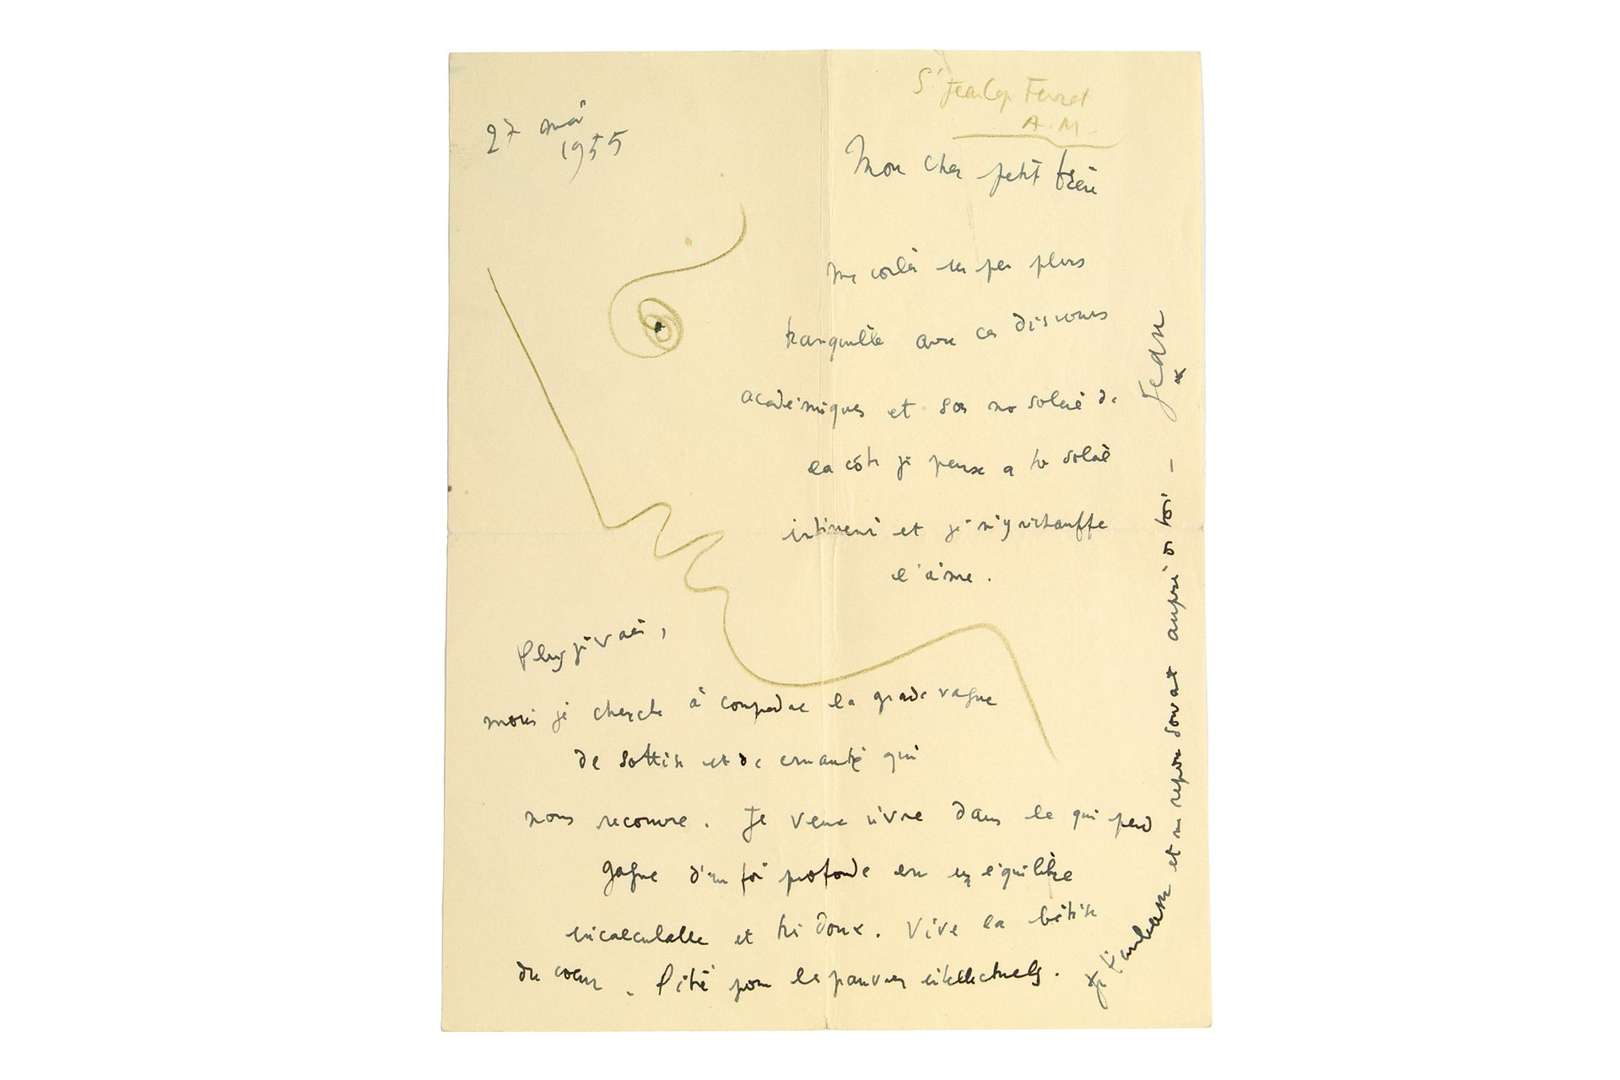 27 mai
1955
St Jean Cap Ferrat
A.M.
Mon cher petit frère
me voilà un peu plus
tranquille avec ces discours
académiques et sous un soleil de
la côte je pense à ton soleil
intérieur et je m'y réchauffe
l'âme.
Plus je vais,
moins je cherche à comprendre la grande vague
de sottise et de cruauté qui
nous recouvre. Je veux vivre dans le qui perd
gagne d'une foi profonde en un équilibre
incalculable et très doux. Vive la bêtise
du cœur. Pitié pour les pauvres intellectuels.
Je t'embrasse et me repose souvent auprès de toi -
Jean